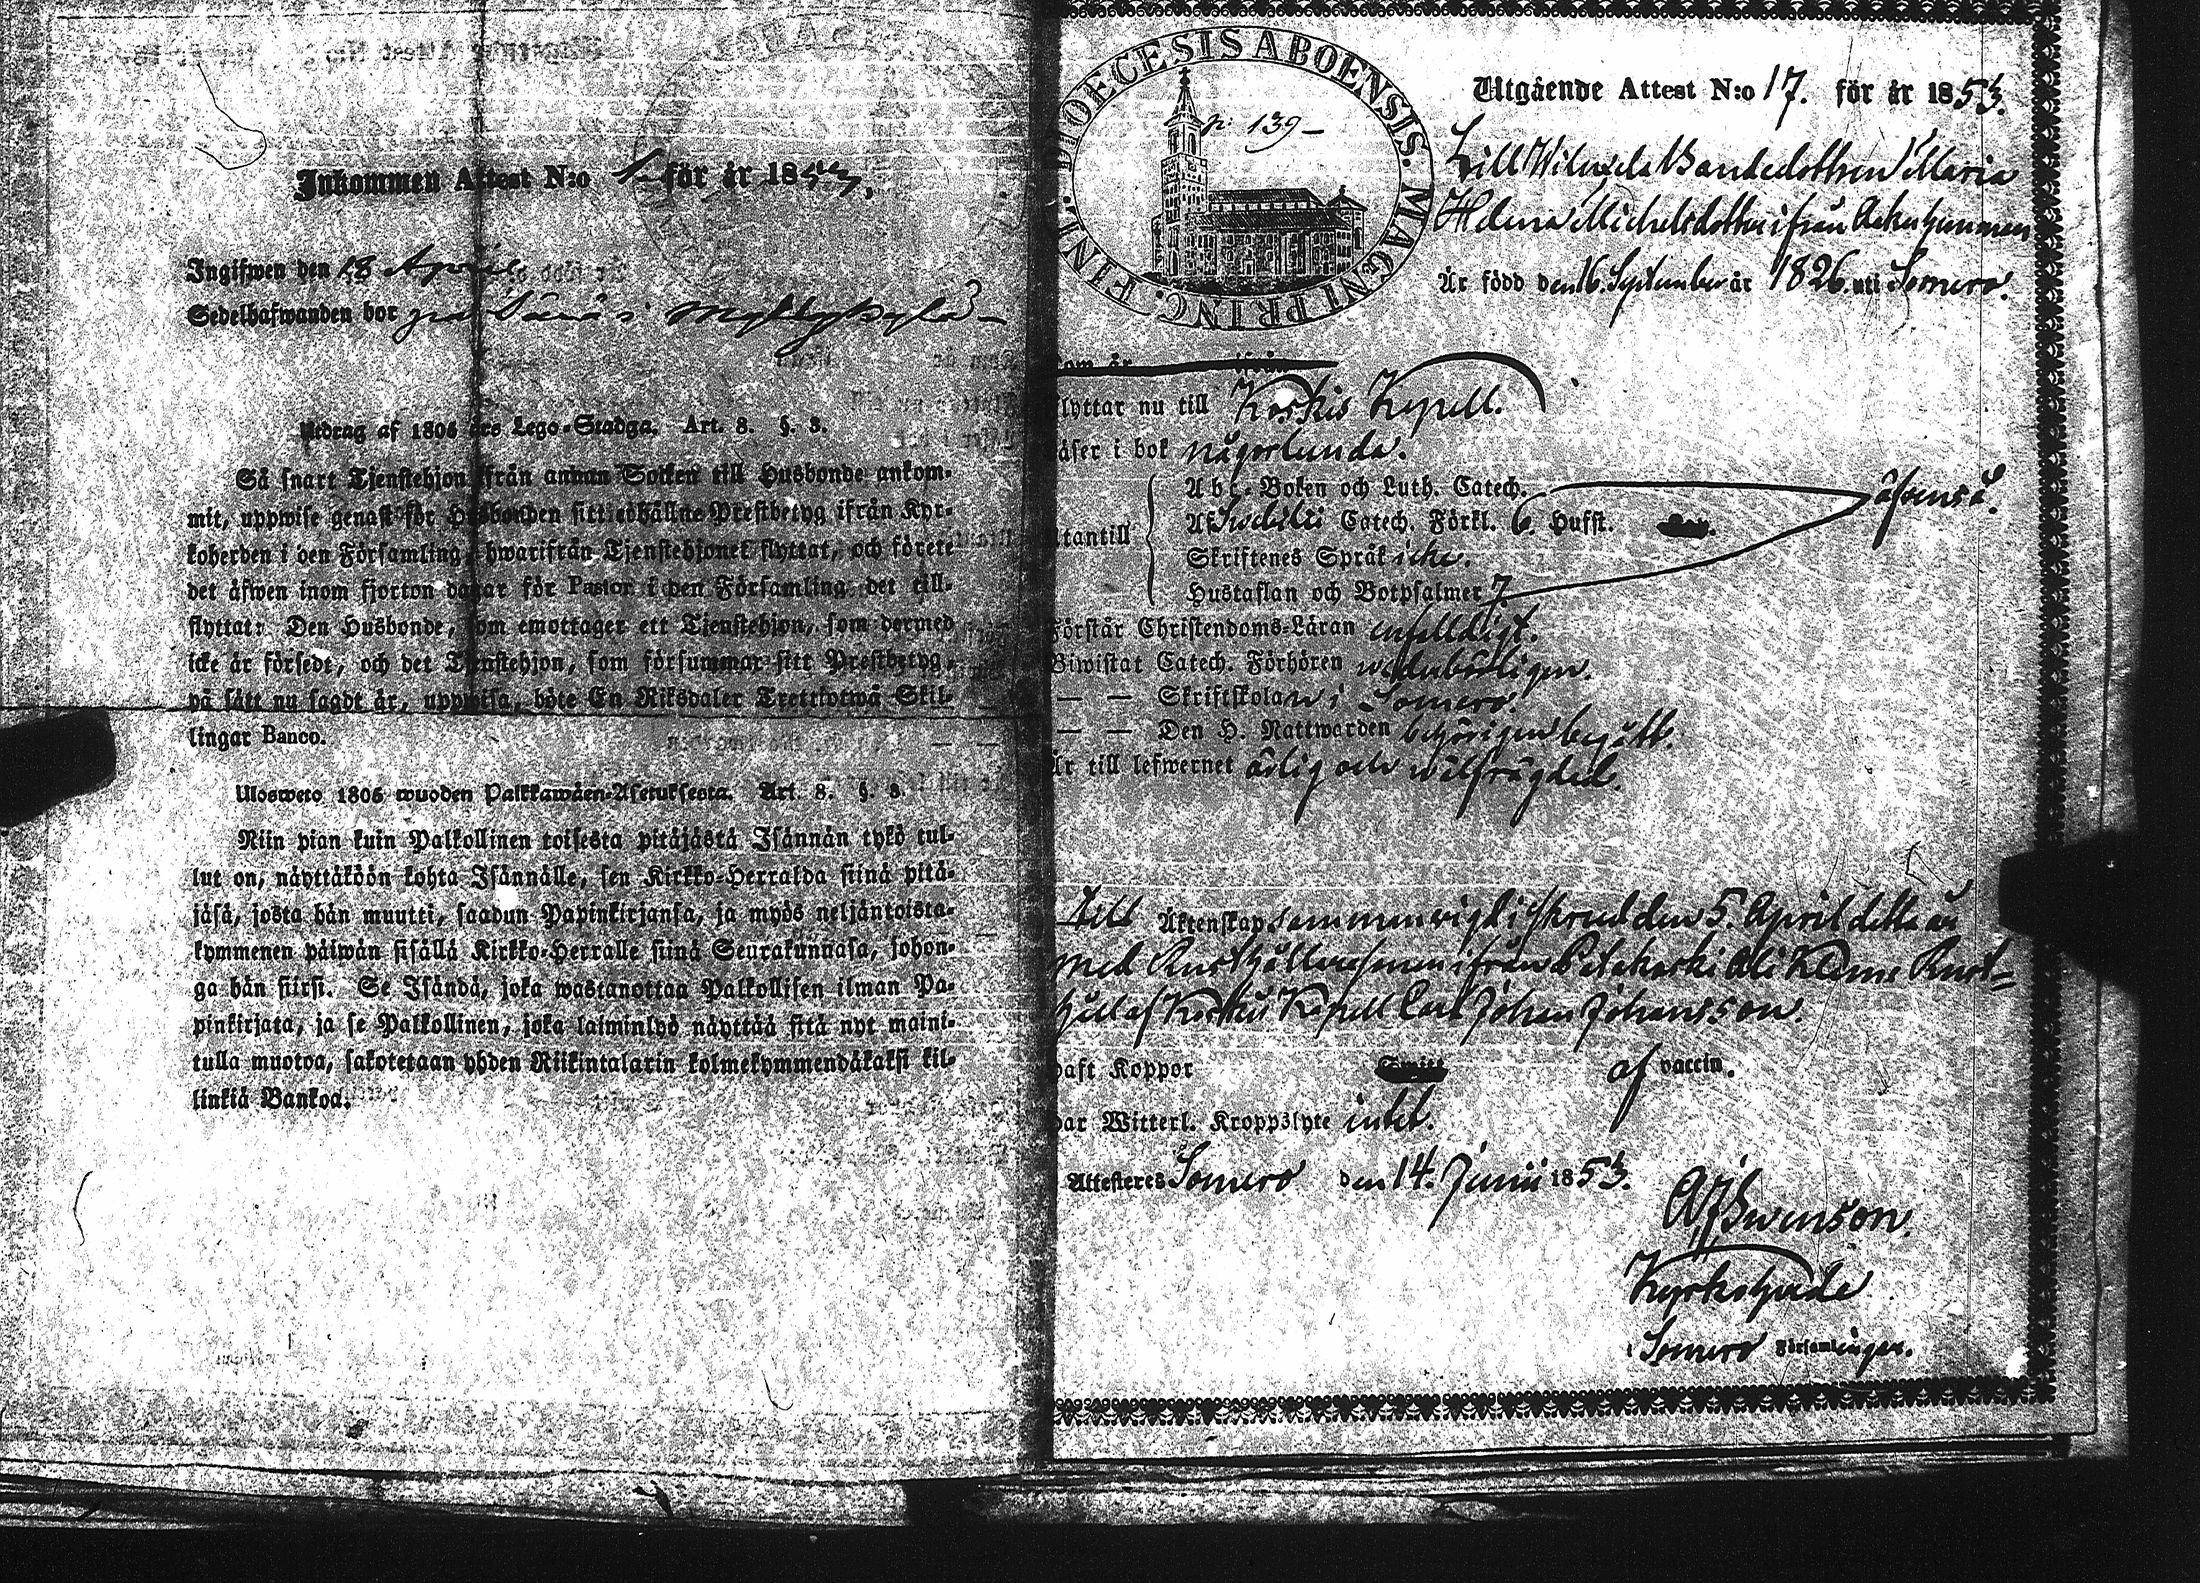 Inkommen Attest N:o för år 185
Ingifwen den 18 April
Sedelhafwanden bor på i
Utdrag af 1805 års Lego-Stadga. Art. 8. §. 3.
Så snart Tjenstehjon ifrån annan Socken till Husbonde ankom-
mit, uppwise genast för Husbonden sitt erhållne Prestbetyg ifrån Kyr-
koherden i den Församling, hwarifrån Tjenstehjonet flyttat, och förete
det äfwen inom fjorton dagar för Pastor i den Församling det till-
flyttat: Den Husbonde, som emottager ett Tjenstehjon, som dermed
icke är försedt, och det Tjenstehjon, som försummar sitt Prestbetyg,
på sätt nu sagdt är, uppwisa, böte En Riksdaler Trettiotwå Skil-
lingar Banco.
Ulosweto 1805 wuoden Palkkawäen-Asetuksesta. Art. 8. §. 3.
Niin pian kuin Palkollinen toisesta pitäjästä Isännän tykö tul-
lut on, näyttäköön kohta Isännälle, sen Kirkko-Herralda siinä pitä-
jäsä, josta hän muutti, saadun Papinkirjansa, ja myös neljäntoista-
kymmenen päiwän sisällä Kirkko-Herralle siinä Seurakunnasa, johon-
ga hän siirsi. Se Isändä, joka wastanottaa Palkollisen ilman Pa-
pinkirjata, ja se Palkollinen, joka laiminlyö näyttää sitä nyt maini-
tulla muotoa, sakotetaan yhden Riikintalarin kolmekymmendäkaksi kil-
linkiä Bankoa.
DIOECESIS ABOENSIS. MAGNI PRINC. FINL.
p: 139
Utgående Attest N:o 17. för år 1853.
Till Bondedottren Maria
Helena Michelsdotter ifrån
Är född den 16. September år 1826. uti Somero.
som är ifrån
flyttar nu till Koskis Kapell.
läser i bok någorlunda.
Utantill
Abc-Boken och Luth. Catech.
Af Swebilii Catech. Förkl. 6. Hufst.
Skriftenes Språk icke.
Hustaflan och Botpsalmer 7.
Förstår Christendoms-Läran enfaldigt.
Biwistat Catech. Förhören wederbörligen.
— — Skriftskolan i Somero.
— — Den H. Nattwarden behörigen begått.
Är till lefwernet ärlig och wälfrägdad.
Till Äktenskap sammanvigd i Åkrud den 5. April detta år
med Rusthållaresonen ifrån Ali Rust-
håll af Koskis Kapell Carl Johan Johansson.
haft Koppor af vaccin.
har Witterl. Kroppslyte intet.
Attesteres Somero den 14. Junii 1853.
Swenson
Kyrkoherde
i Somero Församlingar.